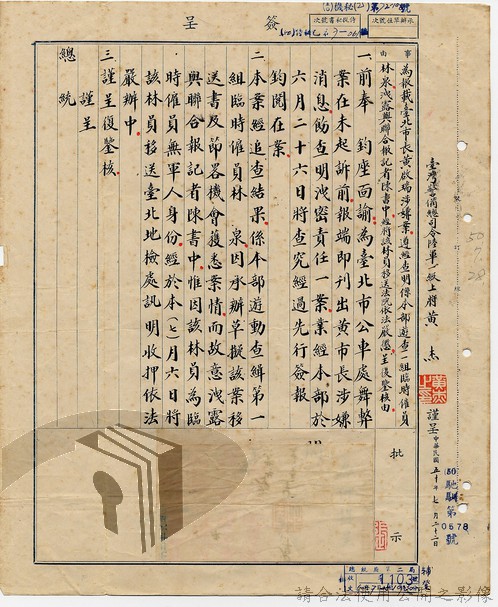 簽呈
事由
為報載臺北市長黃啟瑞涉嫌案消息經查明係本部遊查一組臨時僱員
林泉洩露與聯合報記者陳書中經將該林員移送法院依法嚴懲呈復鑒核由
臺灣警備總司令陸軍一級上將黃杰
謹呈
中華民國五十年七月二十二日
0578號
一、前奉 鈞座面諭為臺北市公車處舞弊
案在未起訴前報端即刊出黃市長涉嫌
消息飭查明洩密責任一案業經本部於
六月二十六日將查究經過先行簽報
鈞閱在案。
二、本案經追查結果係本部遊動查緝第一
組臨時僱員林泉因承辦草擬該案移
送書及節畧機會獲悉案情而故意洩露
與聯合報記者陳書中惟因該林員為臨
時僱員無軍人身份經於本(七)月六日將
該林員移送臺北地檢處訊明收押依法
嚴辦中。
三、謹呈復鑒核。
謹呈
總統
批示
總統府第二局
1103
請合法使用公開之影像